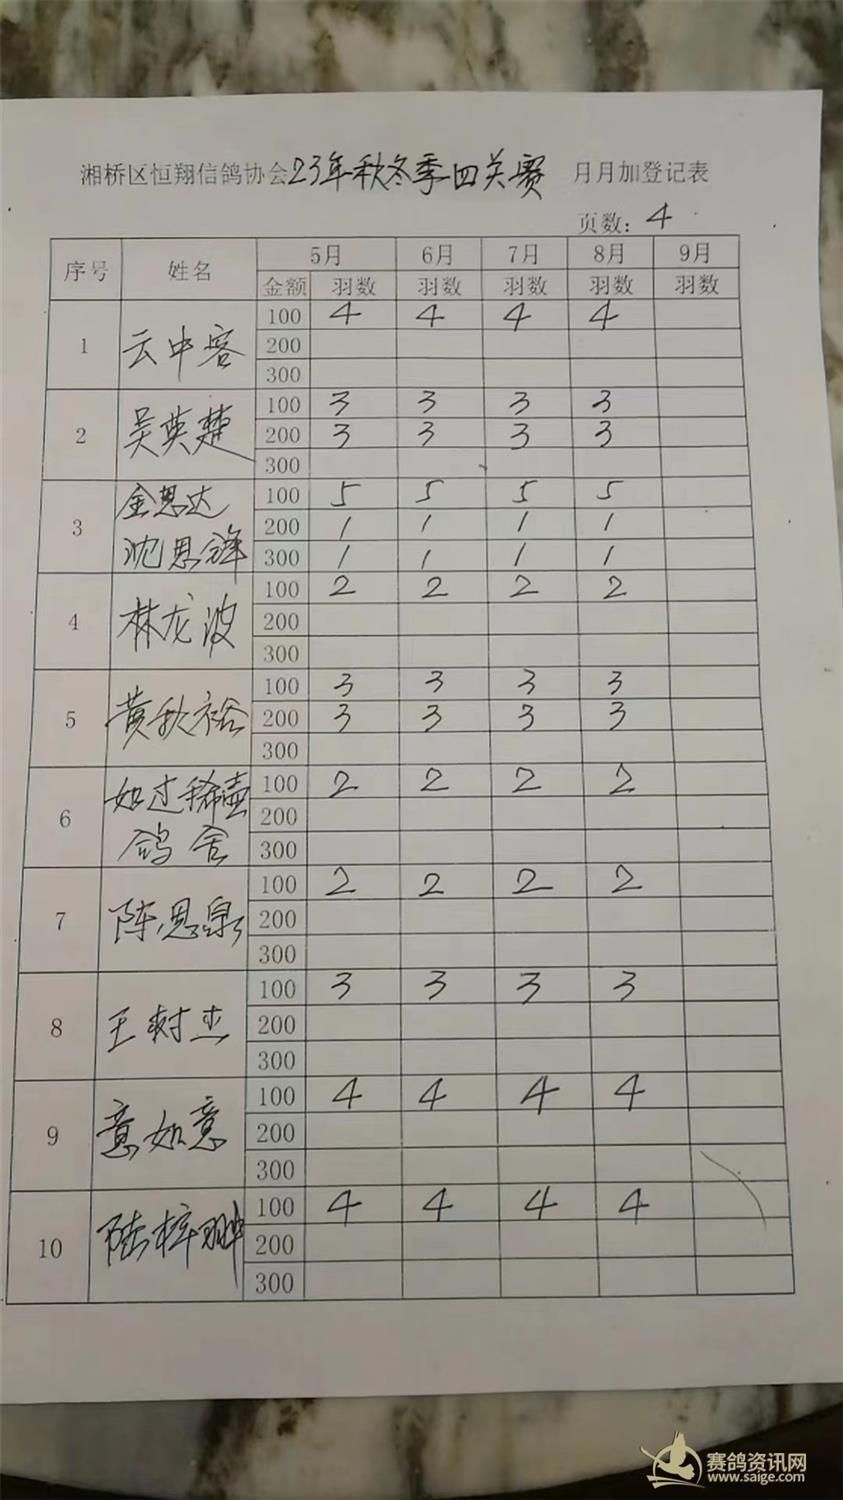 湘桥区恒翔信鸽协会23年秋冬季四关赛 月月加登记表
页数：4
序号 姓名 5月 6月 7月 8月 9月
金额 羽数 羽数 羽数 羽数 羽数
1 云中客 100 4 4 4 4
200
300
2 吴英楚 100 3 3 3 3
200 3 3 3 3
300
3 金思达 100 5 5 5 5
沈思锋 200 1 1 1 1
300 1 1 1 1
4 林龙波 100 2 2 2 2
200
300
5 黄秋裕 100 3 3 3 3
200 3 3 3 3
300
6 如过稀壶 100 2 2 2 2
鸽舍 200
300
7 陈思泉 100 2 2 2 2
200
300
8 王树杰 100 3 3 3 3
200
300
9 意如意 100 4 4 4 4
200
300
10 陆梓翀 100 4 4 4 4
200
300
赛鸽资讯网
www.saige.com